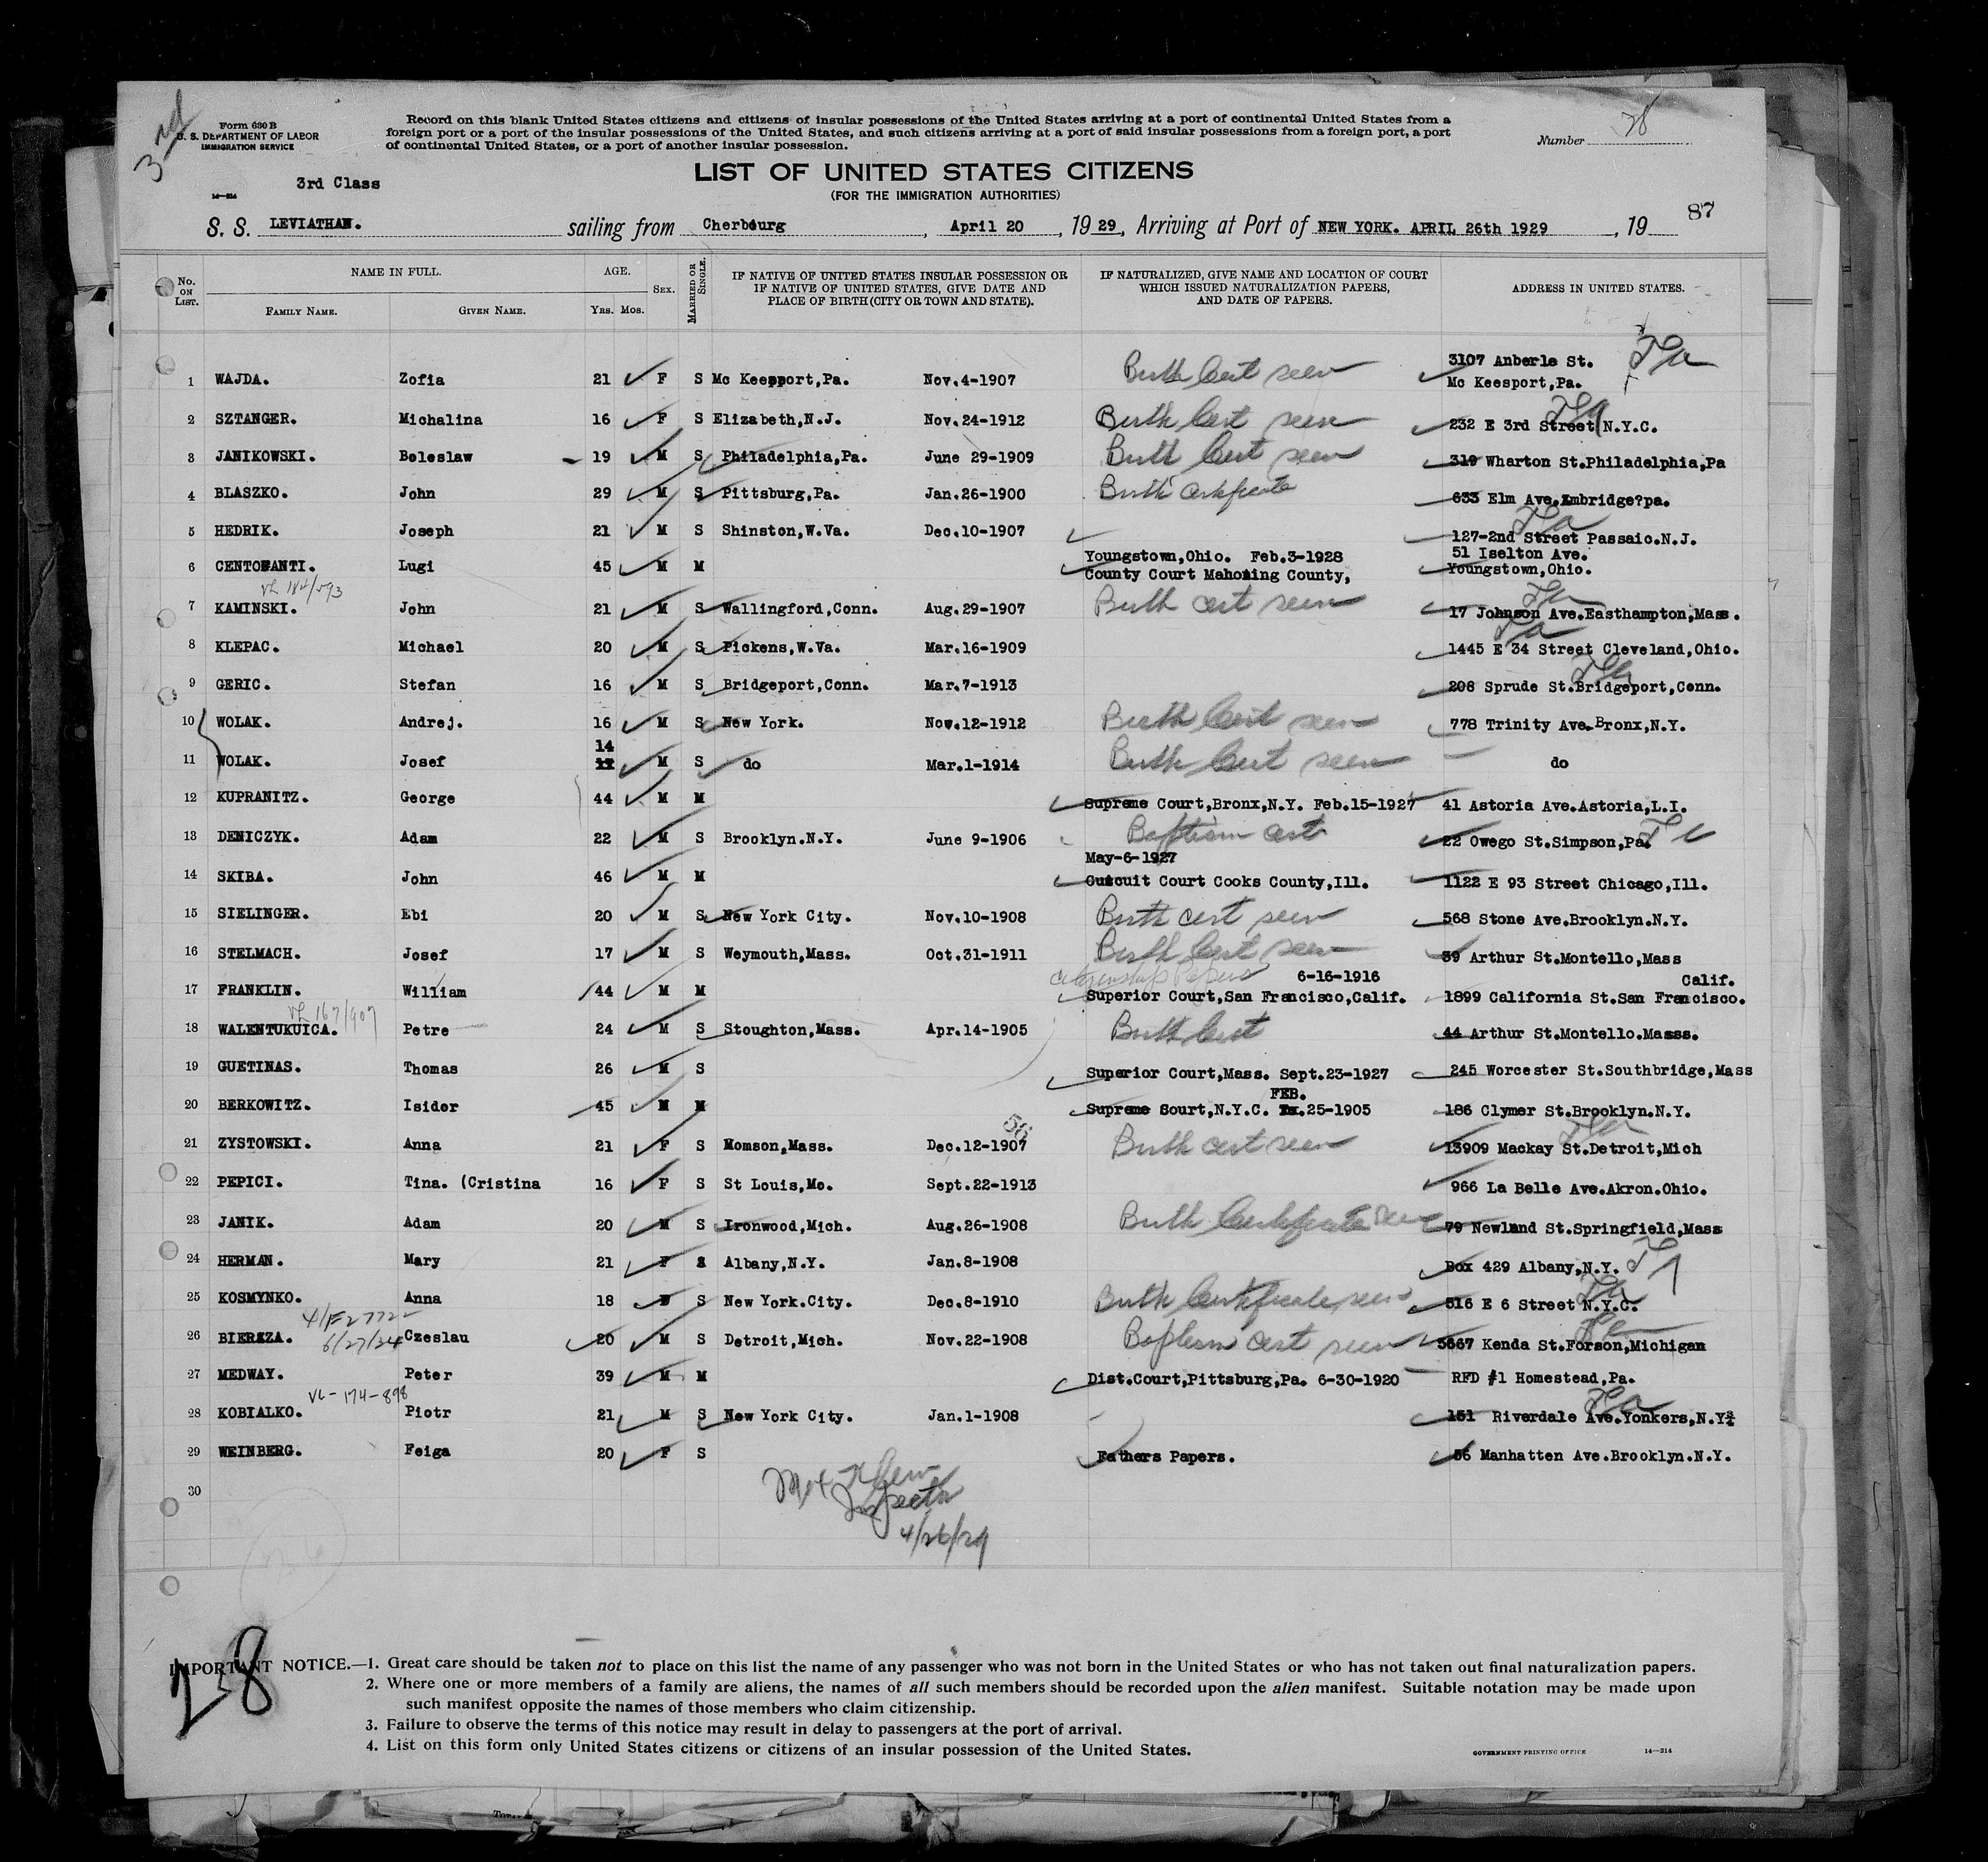 3rd
Form 630 B
U. S. DEPARTMENT OF LABOR
IMMIGRATION SERVICE
Record on this blank United States citizens and citizens of insular possessions of the United States arriving at a port of continental United States from a
foreign port or a port of the insular possessions of the United States, and such citizens arriving at a port of said insular possessions from a foreign port, a port
of continental United States, or a port of another insular possession.
Number
3rd Class
14—214
LIST OF UNITED STATES CITIZENS
(FOR THE IMMIGRATION AUTHORITIES)
87
S. S. LEVIATHAN. sailing from Cherbourg, April 20, 1929, Arriving at Port of NEW YORK. APRIL 26th 1929, 19
No. ON LIST. NAME IN FULL. FAMILY NAME. GIVEN NAME. AGE. YRS. MOS. SEX. MARRIED OR SINGLE. IF NATIVE OF UNITED STATES INSULAR POSSESSION OR IF NATIVE OF UNITED STATES, GIVE DATE AND PLACE OF BIRTH (CITY OR TOWN AND STATE). IF NATURALIZED, GIVE NAME AND LOCATION OF COURT WHICH ISSUED NATURALIZATION PAPERS, AND DATE OF PAPERS. ADDRESS IN UNITED STATES.
1 WAJDA. Zofia 21 F S Mc Keepport,Pa. Nov.4-1907 Birth Cert seen 3107 Anberle St. Mc Keesport,Pa.
2 SZTANGER. Michalina 16 F S Elizabeth,N.J. Nov.24-1912 Birth Cert seen 232 E 3rd Street N.Y.C.
3 JANIKOWSKI. Boleslaw 19 M S Philadelphia,Pa. June 29-1909 Birth Cert seen 319 Wharton St.Philadelphia,Pa
4 BLASZKO. John 29 M S Pittsburg,Pa. Jan.26-1900 Birth certificate 633 Elm Ave.Ambridge?pa.
5 HEDRIK. Joseph 21 M S Shinston,W.Va. Dec.10-1907 127-2nd Street Passaic.N.J.
6 CENTOFANTI. Lugi 45 M M Youngstown,Ohio. Feb.3-1928 County Court Mahoning County, 51 Iselton Ave. Youngstown,Ohio.
7 KAMINSKI. John 21 M S Wallingford,Conn. Aug.29-1907 Birth cert seen 17 Johnson Ave.Easthampton,Mass.
8 KLEPAC. Michael 20 M S Pickens,W.Va. Mar.16-1909 1445 E 34 Street Cleveland,Ohio.
9 GERIC. Stefan 16 M S Bridgeport,Conn. Mar.7-1913 208 Sprude St.Bridgeport,Conn.
10 WOLAK. Andrej. 16 M S New York. Nov.12-1912 Birth Cert seen 778 Trinity Ave.Bronx,N.Y.
11 WOLAK. Josef 14 M S do Mar.1-1914 Birth Cert seen do
12 KUPRANITZ. George 44 M M Supreme Court,Bronx,N.Y. Feb.15-1927 41 Astoria Ave.Astoria,L.I.
13 DENICZYK. Adam 22 M S Brooklyn.N.Y. June 9-1906 Baptism cert 22 Owego St.Simpson,Pa.
May-6-1927
14 SKIBA. John 46 M M Cuicuit Court Cooks County,Ill. 1122 E 93 Street Chicago,Ill.
15 SIELINGER. Ebi 20 M S New York City. Nov.10-1908 Birth cert seen 568 Stone Ave.Brooklyn.N.Y.
16 STELMACH. Josef 17 M S Weymouth,Mass. Oct.31-1911 Birth Cert seen 39 Arthur St.Montello,Mass
citizenship Papers 6-16-1916 Calif.
17 FRANKLIN. William 44 M M Superior Court,San Francisco,Calif. 1899 California St.San Francisco.
18 WALENTUKUICA. Petre 24 M S Stoughton,Mass. Apr.14-1905 Birth Cert 44 Arthur St.Montello.Masss.
19 GUETINAS. Thomas 26 M S Superior Court,Mass. Sept.23-1927 245 Worcester St.Southbridge,Mass
FEB.
20 BERKOWITZ. Isidor 45 M M Supreme Sourt,N.Y.C. 25-1905 186 Clymer St.Brooklyn.N.Y.
21 ZYSTOWSKI. Anna 21 F S Momson,Mass. Dec.12-1907 Birth cert seen 13909 Mackay St.Detroit,Mich
22 PEPICI. Tina. (Cristina 16 F S St Louis,Mo. Sept.22-1913 966 La Belle Ave.Akron.Ohio.
23 JANIK. Adam 20 M S Ironwood,Mich. Aug.26-1908 Birth Certificate seen 79 Newland St.Springfield,Mass
24 HERMAN. Mary 21 F S Albany,N.Y. Jan.8-1908 Box 429 Albany,N.Y.
25 KOSMYNKO. Anna 18 S New York.City. Dec.8-1910 Birth Certificate seen 516 E 6 Street N.Y.C.
4/F27722
6/27/34
26 BIERZZA. Czeslau 20 M S Detroit,Mich. Nov.22-1908 Baptism Cert seen 5667 Kenda St.Forson,Michigan
27 MEDWAY. Peter 39 M M Dist.Court,Pittsburg,Pa. 6-30-1920 RFD #1 Homestead,Pa.
VL-174-898
28 KOBIALKO. Piotr 21 M S New York City. Jan.1-1908 151 Riverdale Ave.Yonkers,N.Y
29 WEINBERG. Feiga 20 F S Fathers Papers. 56 Manhatten Ave.Brooklyn.N.Y.
30
Inspector
4/26/29
28
IMPORTANT NOTICE.—1. Great care should be taken not to place on this list the name of any passenger who was not born in the United States or who has not taken out final naturalization papers.
2. Where one or more members of a family are aliens, the names of all such members should be recorded upon the alien manifest. Suitable notation may be made upon
such manifest opposite the names of those members who claim citizenship.
3. Failure to observe the terms of this notice may result in delay to passengers at the port of arrival.
4. List on this form only United States citizens or citizens of an insular possession of the United States.
GOVERNMENT PRINTING OFFICE 14—214